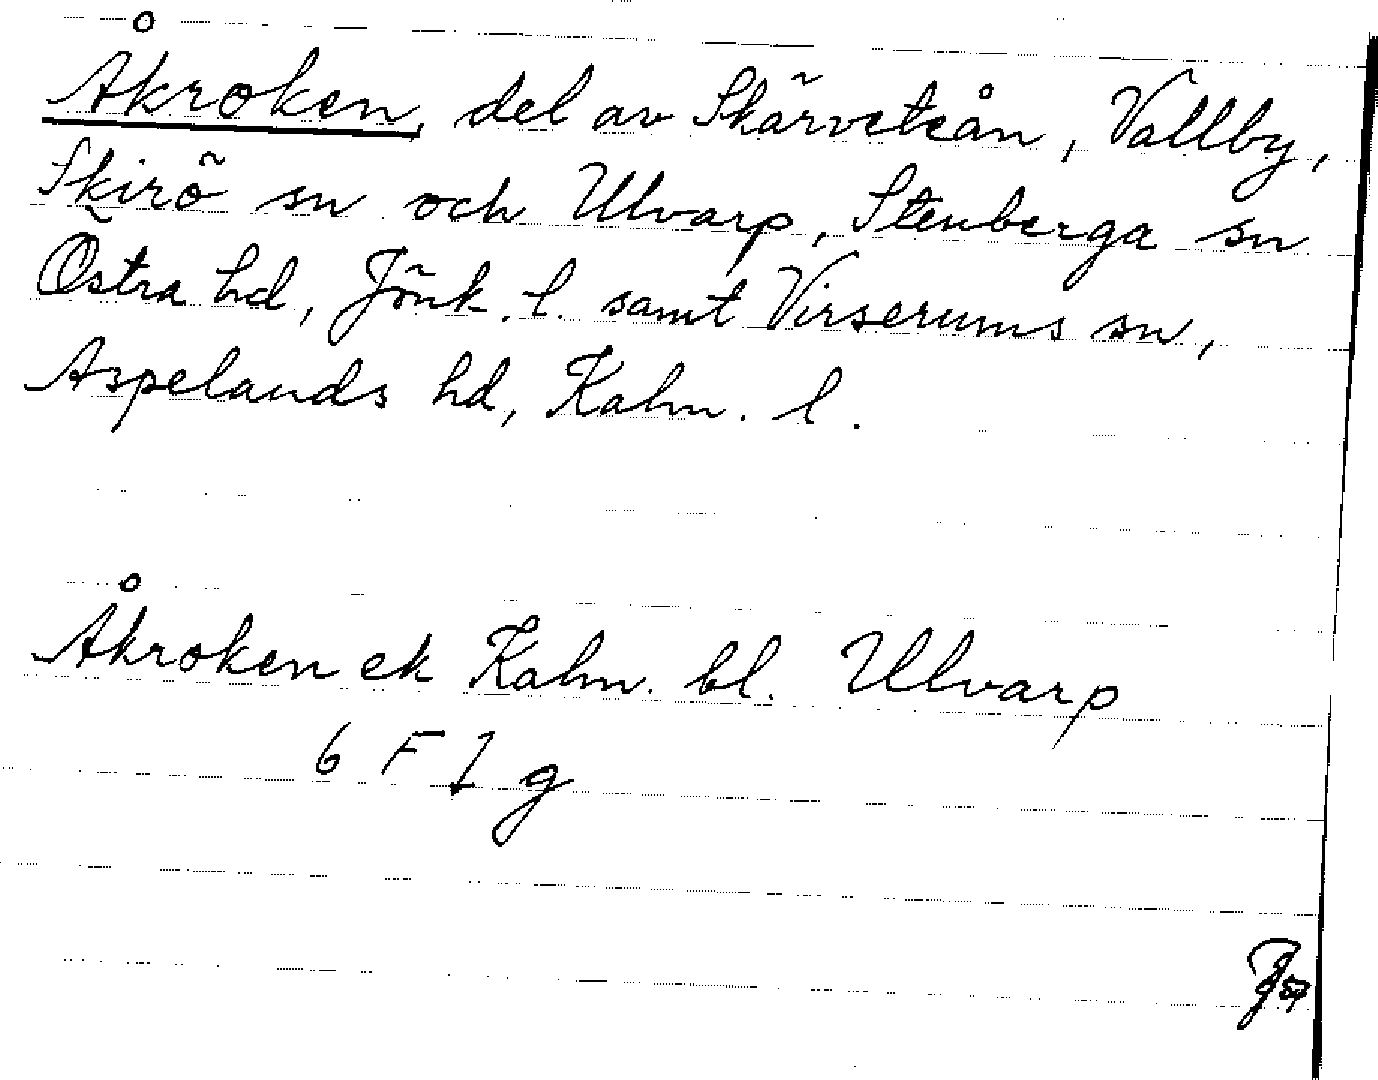 Åkroken, del av Skärveteån, Vallby,
Skirö sn och Ulvarp, Stenberga sn
Östra hd, Jönk. l. samt Virserums sn,
Aspelands hd, Kalm. l.
Åkroken ek Kalm. bl. Ulvarp
6 F I g